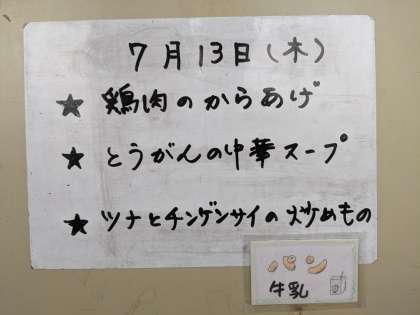 7月13日(木)
★ 鶏肉のからあげ
★ とうがんの中華スープ
★ ツナとチンゲンサイの炒めもの
パン
牛乳